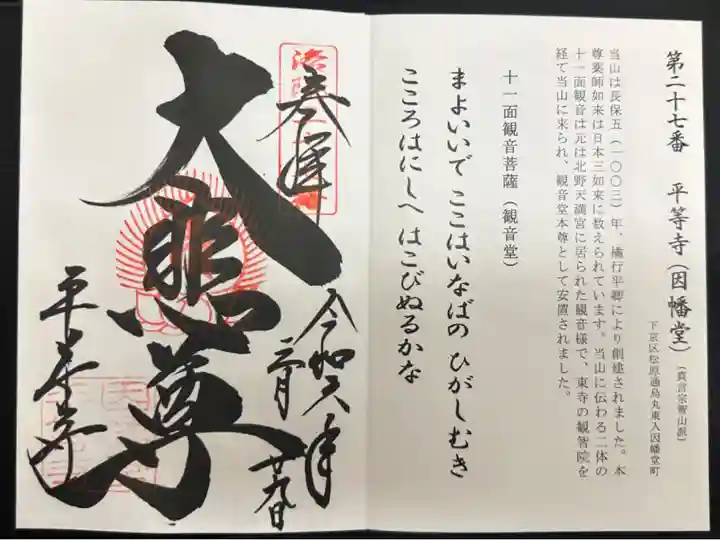 第二十七番　平等寺（因幡堂）（真言宗智山派）
下京区松原通烏丸東入因幡堂町
当山は長保五（一〇〇三）年、橘行平卿により創建されました。本
尊薬師如来は日本三如来に数えられています。当山に伝わる二体の
十一面観音は元は北野天満宮に居られた観音様で、東寺の観智院を
経て当山に来られ、観音堂本尊として安置されました。
十一面観音菩薩（観音堂）
まよいいで ここはいなばの ひがしむき
こころはにしへ はこびぬるかな
奉拝
大悲尊
令和六年
二月
廿九日
平等寺